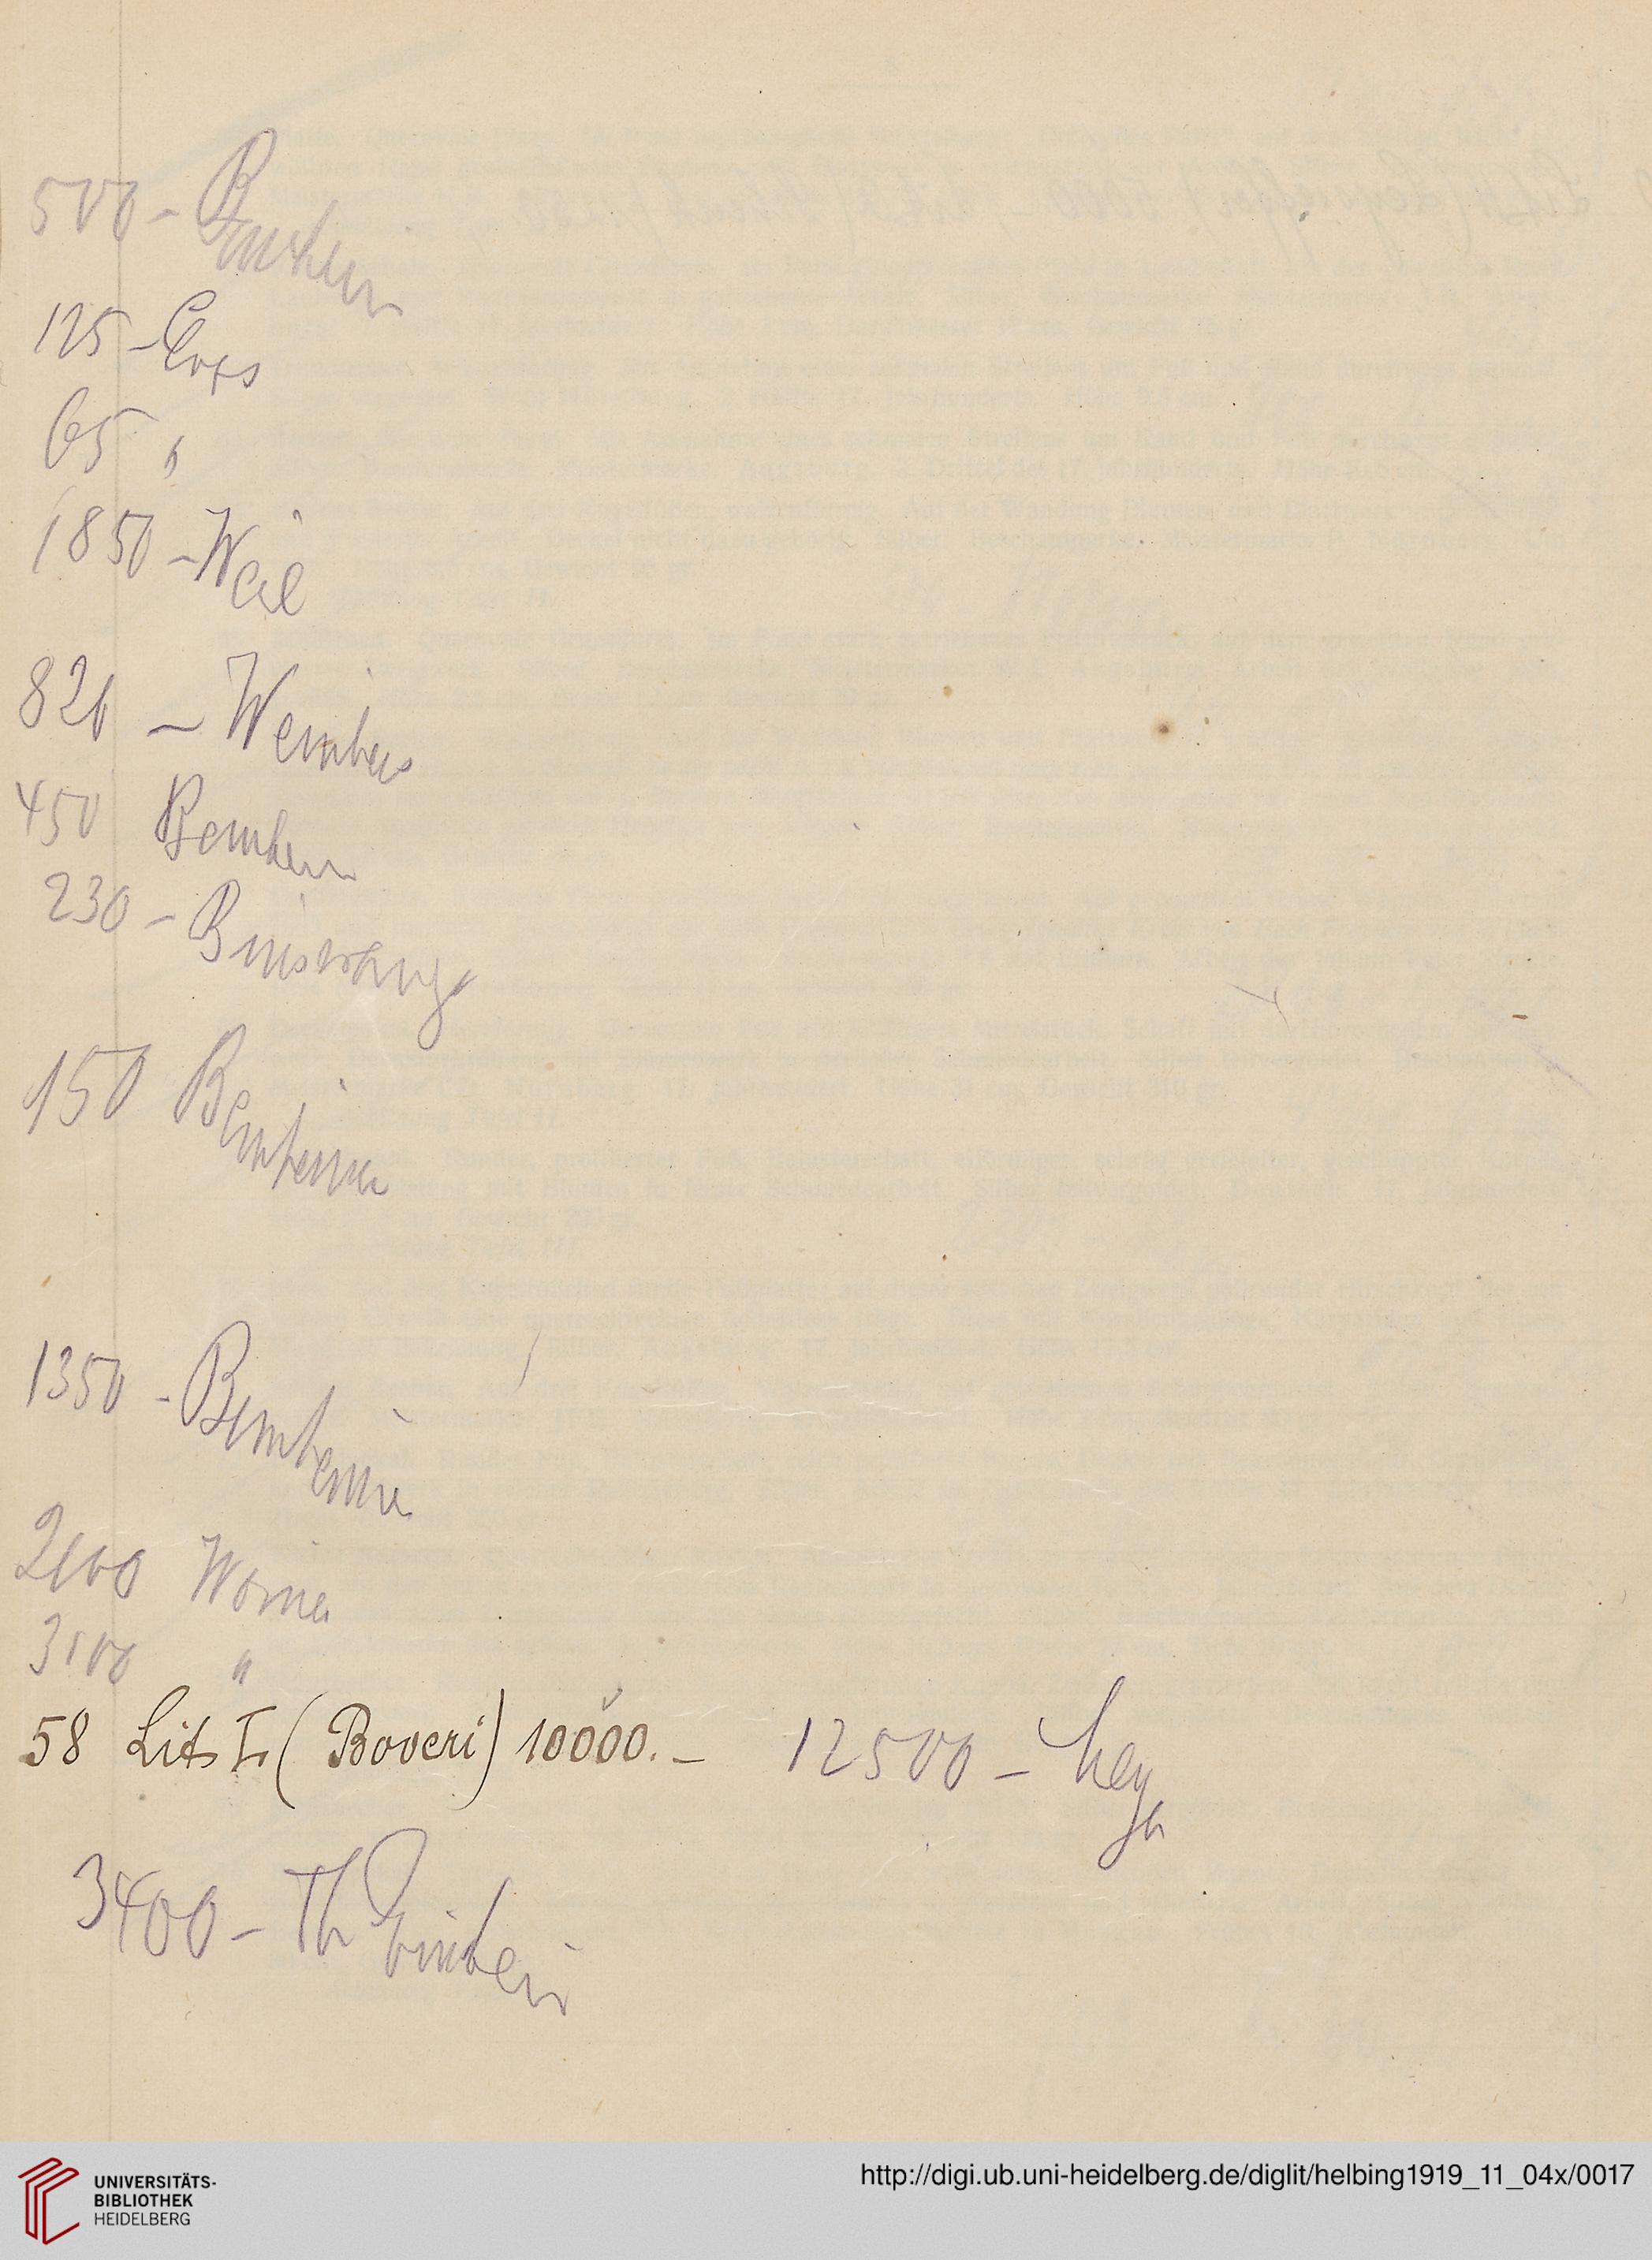 500 - Bernheim
125 -
65 "
1850 - Weil
820 -
450 Bernheim
230 - Binswanger
150 Bernheimer
1350 - Bernheimer
2100 Worner
3100 "
58 Lits I (Boveri) 10000. - 12500 -
3400 - Th
UNIVERSITÄTS-
BIBLIOTHEK
HEIDELBERG
http://digi.ub.uni-heidelberg.de/diglit/helbing1919_11_04x/0017